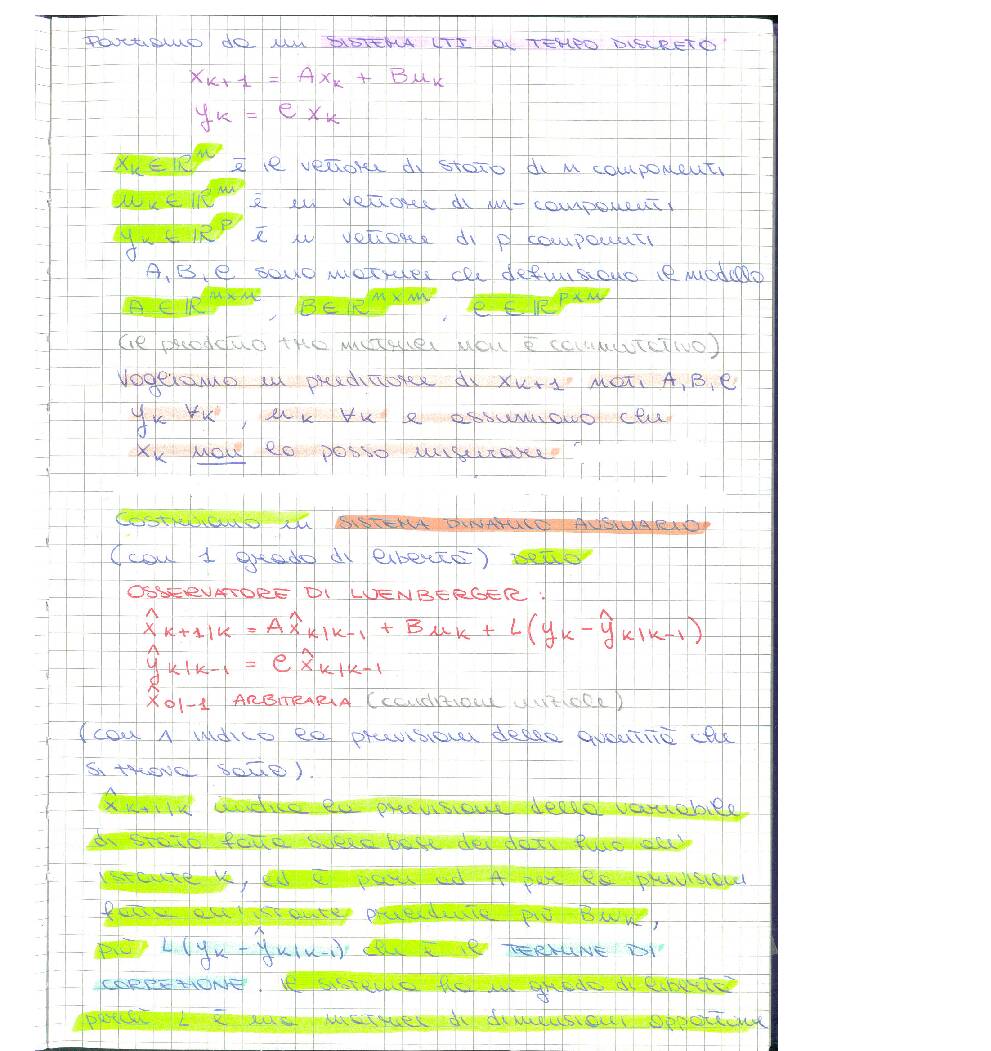 Partiamo da un SISTEMA LTI a TEMPO DISCRETO
x_{k+1} = A x_k + B u_k
y_k = C x_k
x_k ∈ ℝ^n è il vettore di stato di n componenti
u_k ∈ ℝ^m è un vettore di m-componenti
y_k ∈ ℝ^p è un vettore di p componenti
A, B, C sono matrici che definiscono il modello
A ∈ ℝ^{n×n}, B ∈ ℝ^{n×m}, C ∈ ℝ^{p×n}
(il prodotto tra matrici non è commutativo)
Vogliamo un predittore di x_{k+1} noti A, B, C
y_k ∀k, u_k ∀k e assumiamo che
x_k non lo posso misurare
Costruiamo un SISTEMA DINAMICO AUSILIARIO
(con 1 grado di libertà) detto
OSSERVATORE DI LUENBERGER:
x̂_{k+1|k} = A x̂_{k|k-1} + B u_k + L(y_k - ŷ_{k|k-1})
ŷ_{k|k-1} = C x̂_{k|k-1}
x̂_{0|-1} ARBITRARIA (condizione iniziale)
(con ^ indico la previsione della quantità che
si trova sotto).
x̂_{k+1|k} indica la previsione della variabile
di stato fatta sulla base dei dati fino all'
istante k, ed è pari ad A per la previsione
fatta all'istante precedente più B u_k,
più L(y_k - ŷ_{k|k-1}) che è il TERMINE DI
CORREZIONE. Il sistema ha un grado di libertà
perché L è una matrice di dimensioni opportune